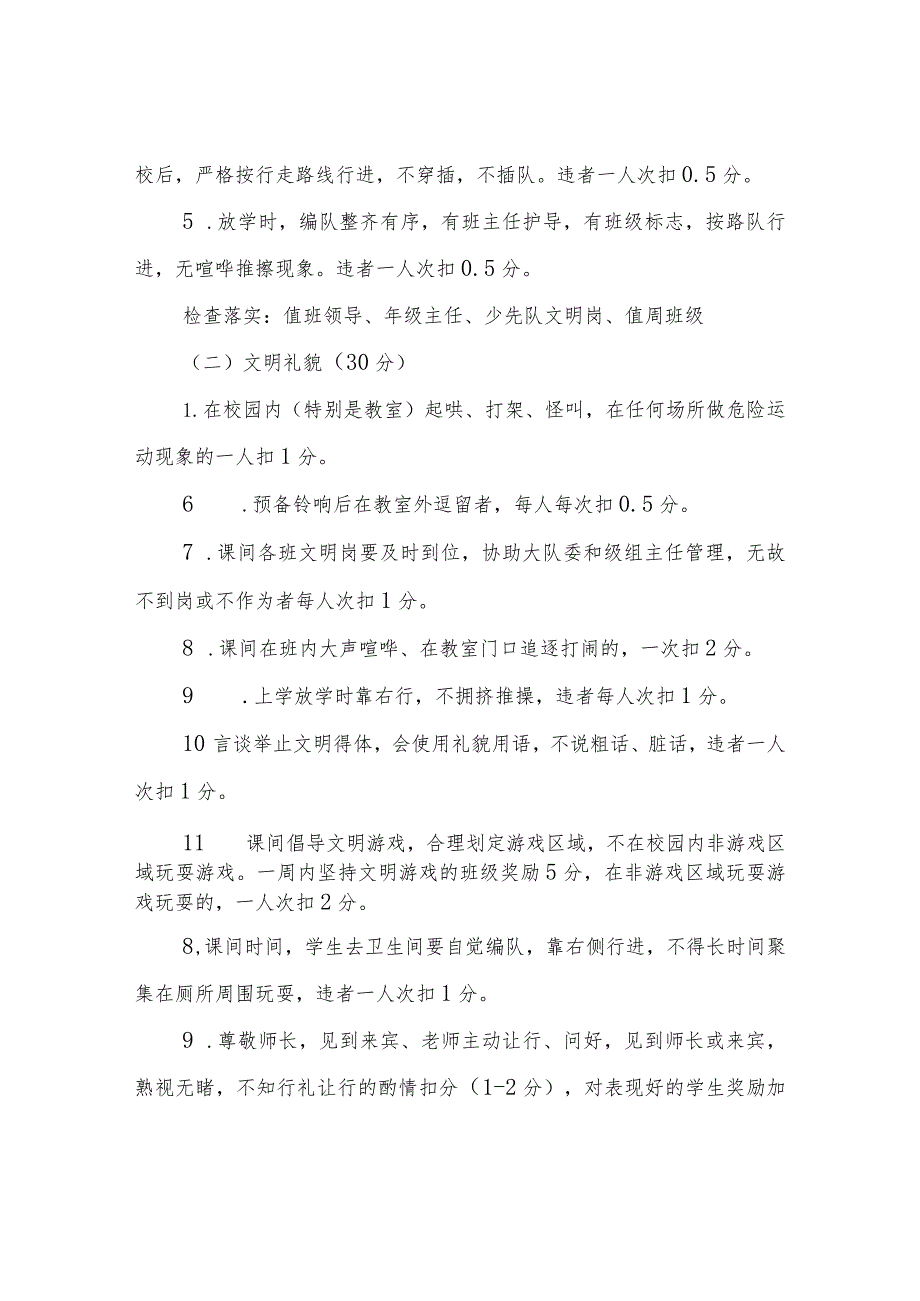 校后，严格按行走路线行进，不穿插，不插队。违者一人次扣0.5分。
5 .放学时，编队整齐有序，有班主任护导，有班级标志，按路队行
进，无喧哗推擦现象。违者一人次扣0.5分。
检查落实：值班领导、年级主任、少先队文明岗、值周班级
（二）文明礼貌（30分）
1.在校园内（特别是教室）起哄、打架、怪叫，在任何场所做危险运
动现象的一人扣1分。
6 .预备铃响后在教室外逗留者，每人每次扣0.5分。
7 .课间各班文明岗要及时到位，协助大队委和级组主任管理，无故
不到岗或不作为者每人次扣1分。
8 .课间在班内大声喧哗、在教室门口追逐打闹的，一次扣2分。
9 .上学放学时靠右行，不拥挤推操，违者每人次扣1分。
10言谈举止文明得体，会使用礼貌用语，不说粗话、脏话，违者一人
次扣1分。
11 课间倡导文明游戏，合理划定游戏区域，不在校园内非游戏区
域玩耍游戏。一周内坚持文明游戏的班级奖励5分，在非游戏区域玩耍游
戏玩耍的，一人次扣2分。
8,课间时间，学生去卫生间要自觉编队，靠右侧行进，不得长时间聚
集在厕所周围玩耍，违者一人次扣1分。
9 .尊敬师长，见到来宾、老师主动让行、问好，见到师长或来宾，
熟视无睹，不知行礼让行的酌情扣分（1-2分），对表现好的学生奖励加